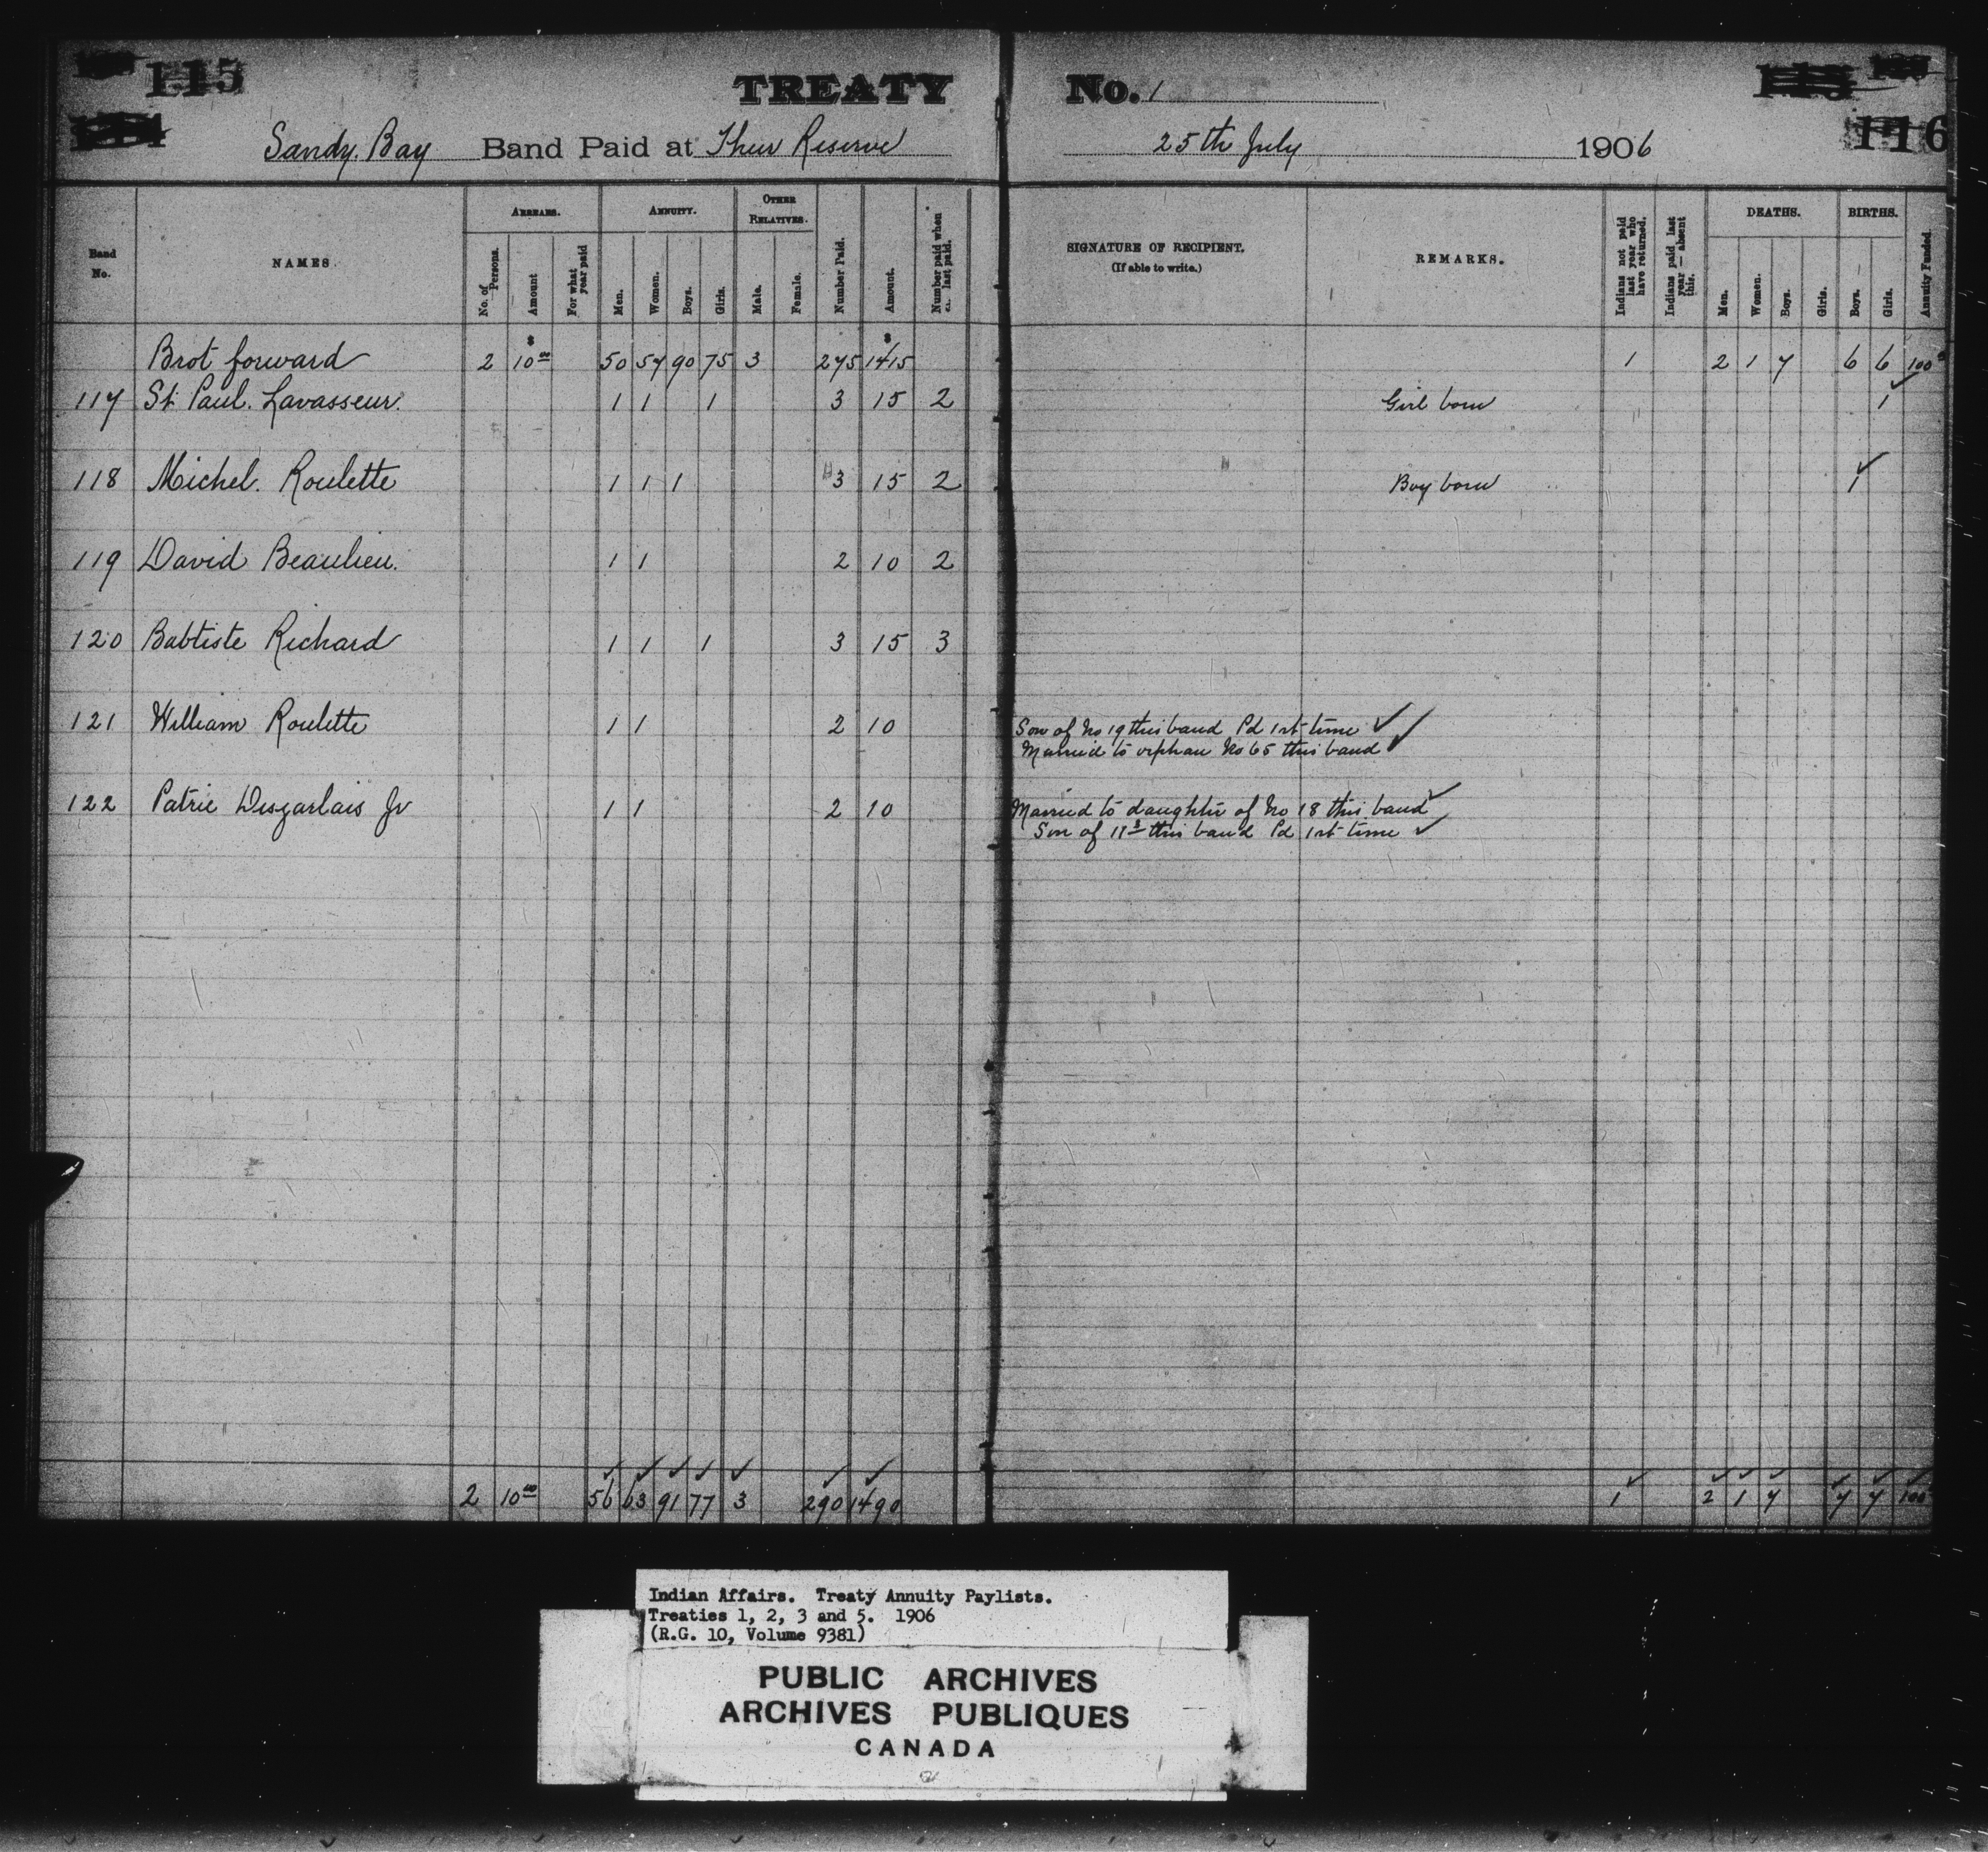 115
TREATY No. 1
116
Sandy Bay Band Paid at Their Reserve 25th July 1906
Band No.
NAMES.
ARREARS.
No. of Persons.
Amount
For what year paid
ANNUITY.
Men.
Women.
Boys.
Girls.
OTHER RELATIVES.
Male.
Female.
Number Paid.
Amount.
Number paid when last paid.
SIGNATURE OF RECIPIENT.
(If able to write.)
REMARKS.
Indians not paid last year who have returned.
Indians paid last year — absent this.
DEATHS.
Men.
Women.
Boys.
Girls.
BIRTHS.
Boys.
Girls.
Annuity Funded.
Brot forward 2 $10.00 50 57 90 75 3 275 $1415 1 2 1 7 6 6 100
117 St Paul. Lavasseur. 1 1 1 3 15 2 Girl born 1
118 Michel. Roulette 1 1 1 3 15 2 Boy born 1
119 David Beaulieu. 1 1 2 10 2
120 Babtiste Richard 1 1 1 3 15 3
121 William Roulette 1 1 2 10 Son of No 19 this band Pd 1st time
Married to orphan No 65 this band
122 Patric Desjarlais Jr 1 1 2 10 Married to daughter of No 18 this band
Son of this band Pd 1st time
2 10.00 56 63 91 77 3 290 1490 1 2 1 7 7 7 100
Indian Affairs. Treaty Annuity Paylists.
Treaties 1, 2, 3 and 5. 1906
(R.G. 10, Volume 9381)
PUBLIC ARCHIVES
ARCHIVES PUBLIQUES
CANADA